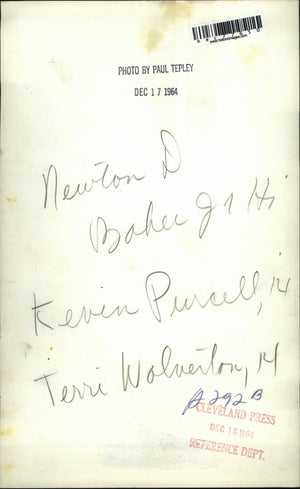 PHOTO BY PAUL TEPLEY
DEC 17 1964
Newton D
Baker Jr Hi
Kevin Purcell, 14
Terri Wolverton, 14
A292B
CLEVELAND PRESS
DEC 18 1964
REFERENCE DEPT.